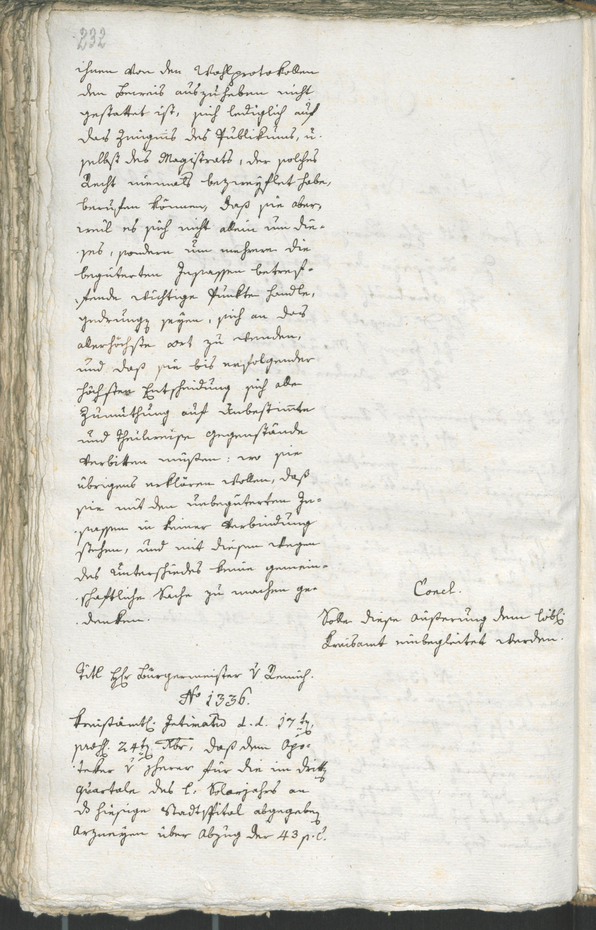 232
ihnen von den Wahlprotokollen
den Beweis auszuheben nicht
gestattet ist, sich lediglich auf
das Zeugnis des Publikums, u.
selbst des Magistrats, der solches
Recht niemals bezweyflet habe,
berufen können, daß sie aber,
weil es sich nicht allein um die-
ses, sondern um mehrere die
begüterten Insassen betref-
fende wichtige Punkte handle,
gedrungen seyen, sich an das
allerhöchste Ort zu wenden,
und daß sie bis erfolgender
höchsten Entscheidung sich alle
Zumuthung auf Unbestimte
und theilweise Gegenstände
verbitten müßen: wo sie
übrigens erklären wollen, daß
sie mit den unbegüterten In-
sassen in keiner Verbindung
stehen, und mit diesen wegen
des Unterschiedes keine gemein-
schaftliche Sache zu machen ge-
denken.
Concl.
Solle diese Äußerung dem löbl.
Kreisamt einbegleitet werden.
Titl Hr Bürgermeister v
No 1336.
Kreisämtl. Intimatum d.d. 17t
24t 7br, daß dem Apo-
teker v für die im drit
Quartale des l. Solarjahrs an
ds hiesige Stadtspital abgegeben
Arzneyen über Abzug der 43 p.C.